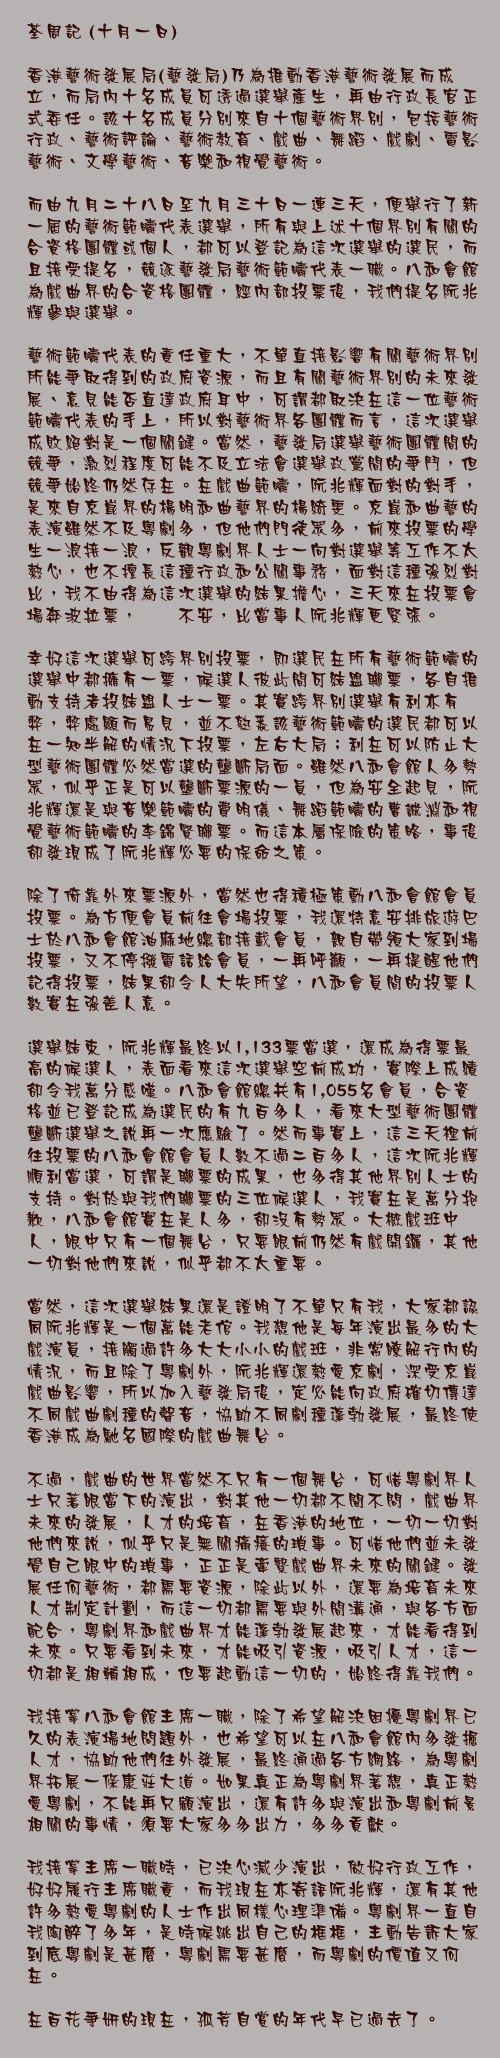 荃問記 (十月一日)
香港藝術發展局(藝發局)乃為推動香港藝術發展而成
立，而局內十名成員可透過選舉產生，再由行政長官正
式委任。該十名成員分別來自十個藝術界別，包括藝術
行政、藝術評論、藝術教育、戲曲、舞蹈、戲劇、電影
藝術、文學藝術、音樂和視覺藝術。
而由九月二十八日至九月三十日一連三天，便舉行了新
一屆的藝術範疇代表選舉，所有與上述十個界別有關的
合資格團體或個人，都可以登記為這次選舉的選民，而
且接受提名，競逐藝發局藝術範疇代表一職。八和會館
為戲曲界的合資格團體，經內部投票後，我們提名阮兆
輝參與選舉。
藝術範疇代表的責任重大，不單直接影響有關藝術界別
所能爭取得到的政府資源，而且有關藝術界別的未來發
展、意見能否直達政府耳中，可謂都取決在這一位藝術
範疇代表的手上，所以對藝術界各團體而言，這次選舉
成敗絕對是一個關鍵。當然，藝發局選舉藝術團體間的
競爭，激烈程度可能不及立法會選舉政黨間的爭鬥，但
競爭始終仍然存在。在戲曲範疇，阮兆輝面對的對手，
是來自京崑界的楊明和曲藝界的楊綺雯。京崑和曲藝的
表演雖然不及粵劇多，但他們門徒眾多，前來投票的學
生一浪接一浪，反觀粵劇界人士一向對選舉等工作不太
熱心，也不擅長這種行政和公關事務，面對這種強烈對
比，我不由得為這次選舉的結果擔心，三天來在投票會
場奔波拉票，　　不安，比當事人阮兆輝更緊張。
幸好這次選舉可跨界別投票，即選民在所有藝術範疇的
選舉中都擁有一票，候選人彼此間可結盟聯票，各自推
動支持者投結盟人士一票。其實跨界別選舉有利亦有
弊，弊處顯而易見，並不熟悉該藝術範疇的選民都可以
在一知半解的情況下投票，左右大局；利在可以防止大
型藝術團體必然當選的壟斷局面。雖然八和會館人多勢
眾，似乎正是可以壟斷票源的一員，但為安全起見，阮
兆輝還是與音樂範疇的費明儀、舞蹈範疇的曹誠淵和視
覺藝術範疇的李錦賢聯票。而這本屬保險的策略，事後
卻發現成了阮兆輝必要的保命之策。
除了倚靠外來票源外，當然也得積極策動八和會館會員
投票。為方便會員前往會場投票，我還特意安排旅遊巴
士於八和會館油麻地總部接載會員，親自帶領大家到場
投票，又不停撥電話給會員，一再呼籲，一再提醒他們
記得投票，結果卻令人大失所望，八和會員間的投票人
數實在強差人意。
選舉結束，阮兆輝最終以1,133票當選，還成為得票最
高的候選人，表面看來這次選舉空前成功，實際上成績
卻令我萬分感嘆。八和會館總共有1,055名會員，合資
格並已登記成為選民的有九百多人，看來大型藝術團體
壟斷選舉之說再一次應驗了。然而事實上，這三天裡前
往投票的八和會館會員人數不過二百多人，這次阮兆輝
順利當選，可謂是聯票的成果，也多得其他界別人士的
支持。對於與我們聯票的三位候選人，我實在是萬分抱
歉，八和會館實在是人多，卻沒有勢眾。大概戲班中
人，眼中只有一個舞台，只要眼前仍然有戲開鑼，其他
一切對他們來說，似乎都不太重要。
當然，這次選舉結果還是證明了不單只有我，大家都認
同阮兆輝是一個萬能老倌。我想他是每年演出最多的大
戲演員，接觸過許多大大小小的戲班，非常瞭解行內的
情況，而且除了粵劇外，阮兆輝還熱愛京劇，深受京崑
戲曲影響，所以加入藝發局後，定必能向政府確切傳達
不同戲曲劇種的聲音，協助不同劇種蓬勃發展，最終使
香港成為馳名國際的戲曲舞台。
不過，戲曲的世界當然不只有一個舞台，可惜粵劇界人
士只著眼當下的演出，對其他一切都不聞不問，戲曲界
未來的發展，人才的培育，在香港的地位，一切一切對
他們來說，似乎只是無關痛癢的瑣事。可惜他們並未發
覺自己眼中的瑣事，正正是牽繫戲曲界未來的關鍵。發
展任何藝術，都需要資源，除此以外，還要為培育未來
人才制定計劃，而這一切都需要與外間溝通，與各方面
配合，粵劇界和戲曲界才能蓬勃發展起來，才能看得到
未來。只要看到未來，才能吸引資源，吸引人才，這一
切都是相輔相成，但要起動這一切的，始終得靠我們。
我接掌八和會館主席一職，除了希望解決困擾粵劇界已
久的表演場地問題外，也希望可以在八和會館內多發掘
人才，協助他們往外發展，最終通過各方網路，為粵劇
界拓展一條康莊大道。如果真正為粵劇界著想，真正熱
愛粵劇，不能再只顧演出，還有許多與演出和粵劇前景
相關的事情，須要大家多多出力，多多貢獻。
我接掌主席一職時，已決心減少演出，做好行政工作，
好好履行主席職責，而我現在亦寄語阮兆輝，還有其他
許多熱愛粵劇的人士作出同樣心理準備。粵劇界一直自
我陶醉了多年，是時候跳出自己的框框，主動告訴大家
到底粵劇是甚麼，粵劇需要甚麼，而粵劇的價值又何
在。
在百花爭妍的現在，孤芳自賞的年代早已過去了。